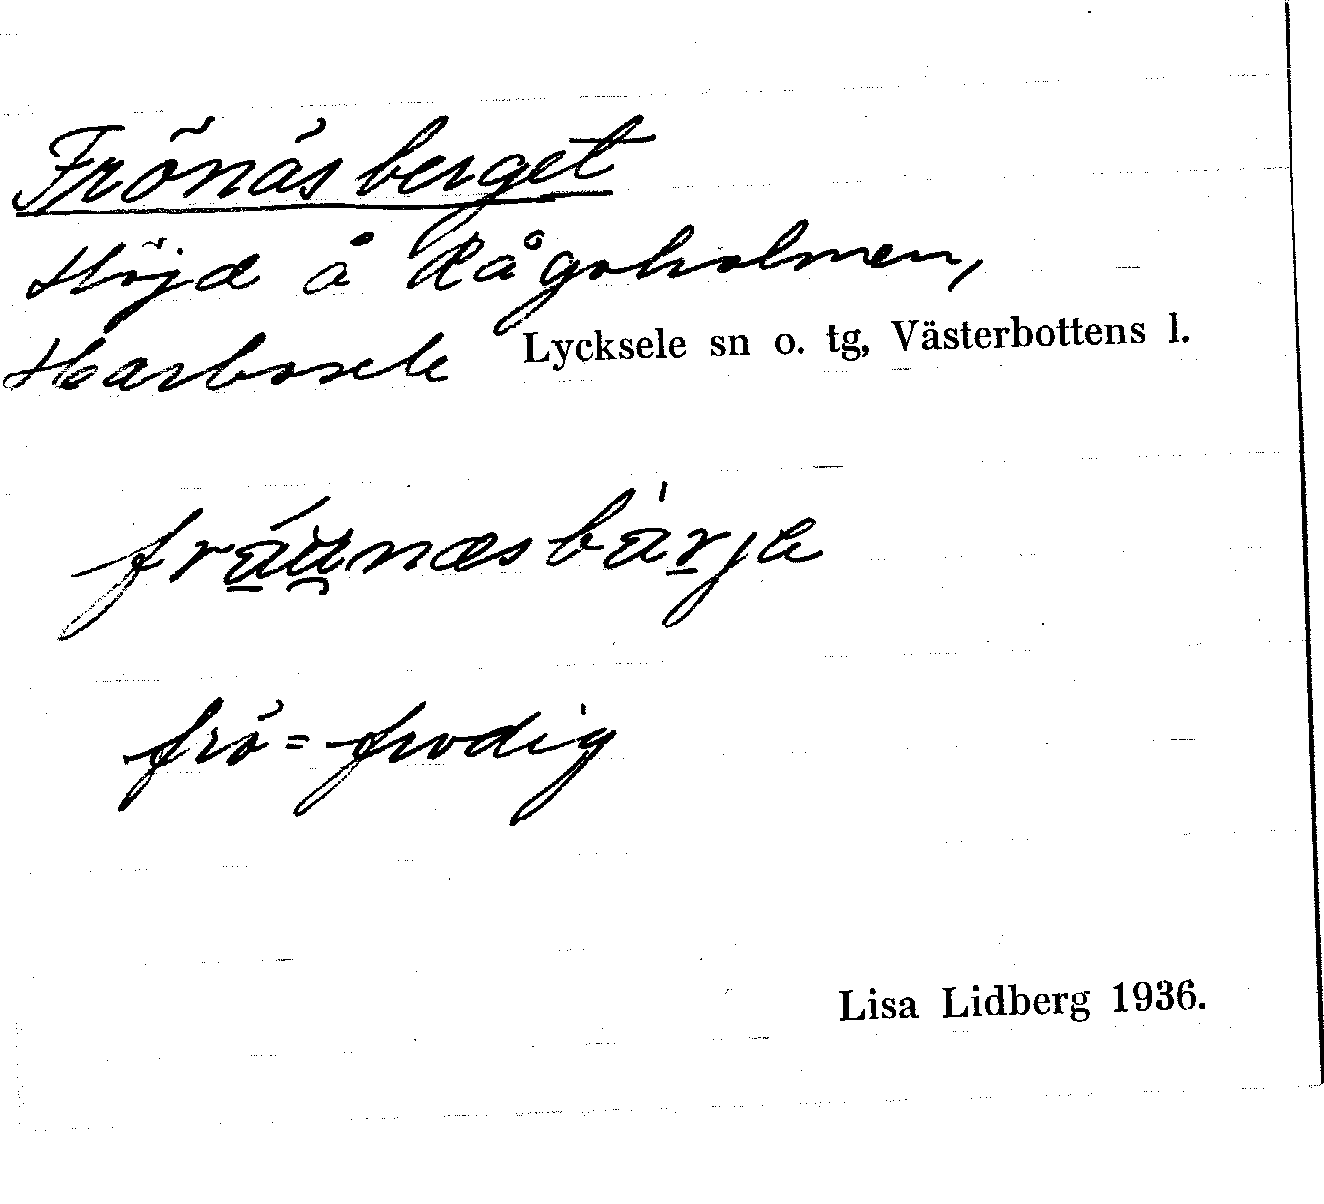 Frönäsberget
Höjd å Rågoholmen,
Harbosele Lycksele sn o. tg, Västerbottens l.
frö = frodig
Lisa Lidberg 1936.